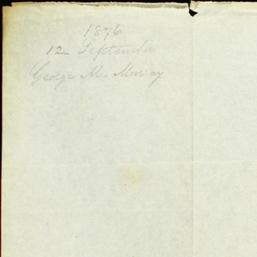 1876
12 September
George Mc Murray